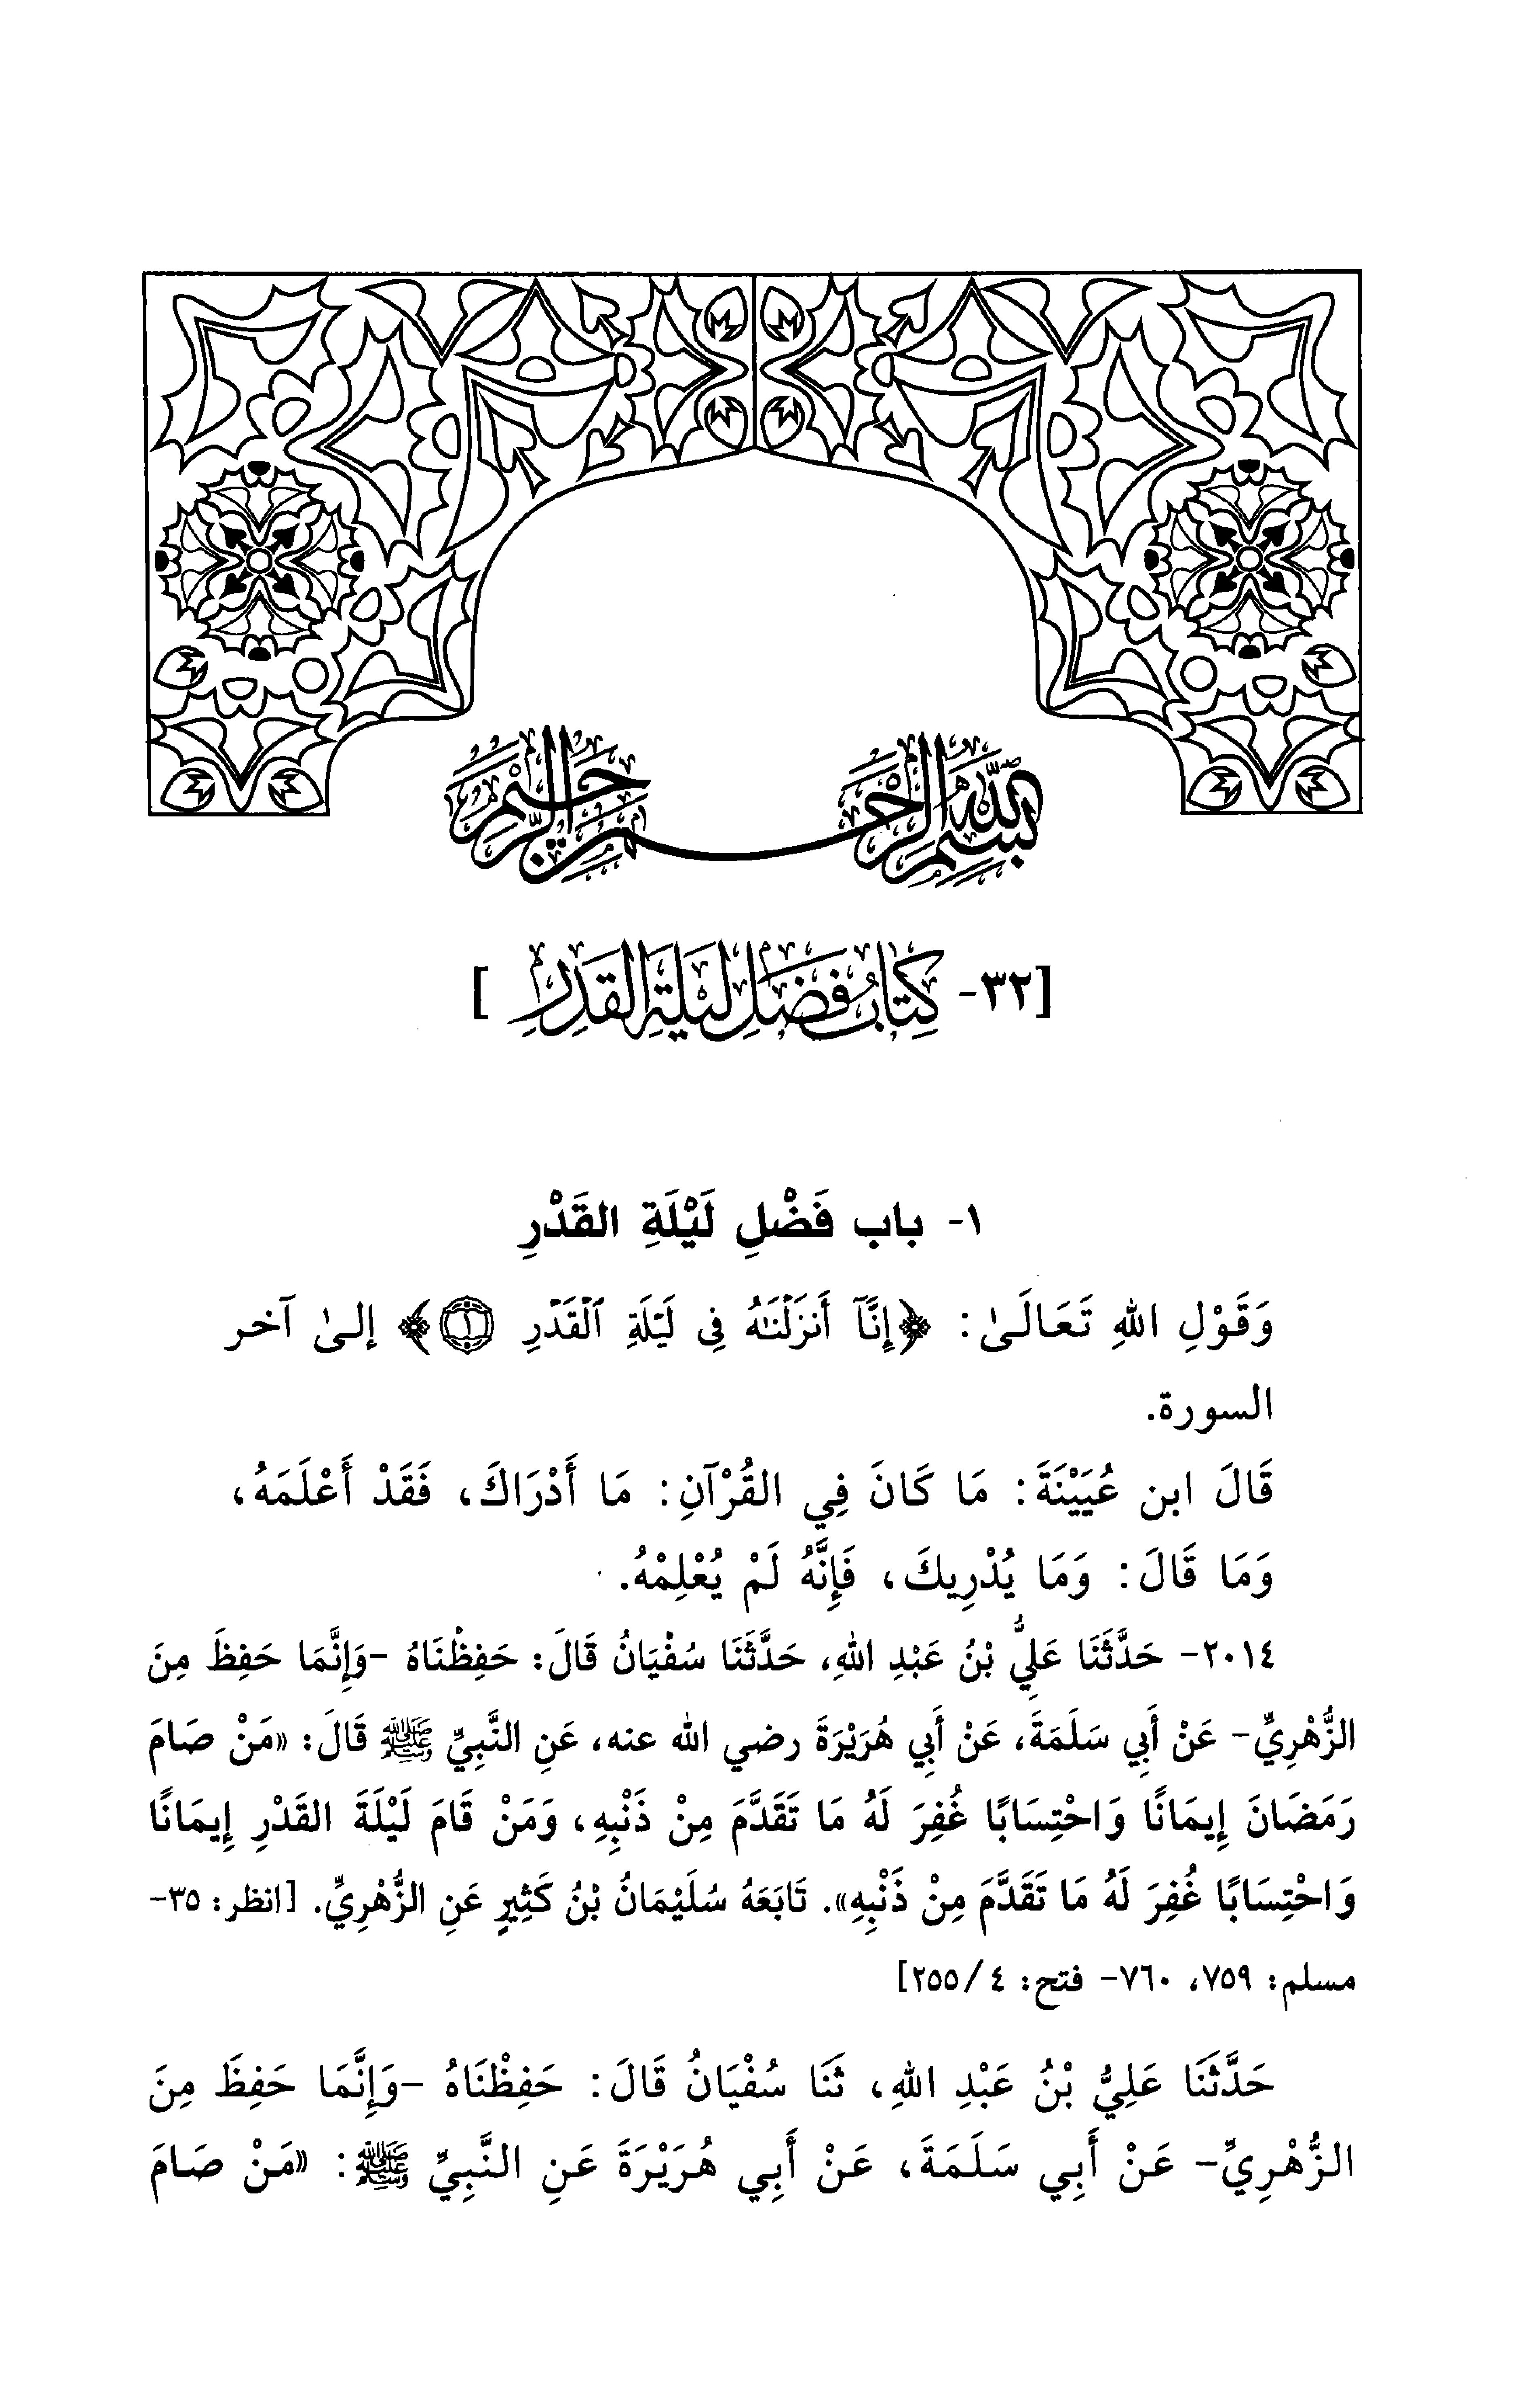 بِسْمِ اللهِ الرَّحْمَنِ الرَّحِيمِ
[٣٢- كِتَابُ فَضْلِ لَيْلَةِ القَدْرِ]
١- باب فَضْلِ لَيْلَةِ القَدْرِ
وَقَوْلِ اللهِ تَعَالَىٰ: ﴿إِنَّآ أَنزَلْنَٰهُ فِى لَيْلَةِ ٱلْقَدْرِ ١﴾ إلىٰ آخر
السورة.
قَالَ ابن عُيَيْنَةَ: مَا كَانَ فِي القُرْآنِ: مَا أَدْرَاكَ، فَقَدْ أَعْلَمَهُ،
وَمَا قَالَ: وَمَا يُدْرِيكَ، فَإِنَّهُ لَمْ يُعْلِمْهُ.
٢٠١٤- حَدَّثَنَا عَلِيُّ بْنُ عَبْدِ اللهِ، حَدَّثَنَا سُفْيَانُ قَالَ: حَفِظْنَاهُ -وَإِنَّمَا حَفِظَ مِنَ
الزُّهْرِيِّ- عَنْ أَبِي سَلَمَةَ، عَنْ أَبِي هُرَيْرَةَ رضي الله عنه، عَنِ النَّبِيِّ ﷺ قَالَ: «مَنْ صَامَ
رَمَضَانَ إِيمَانًا وَاحْتِسَابًا غُفِرَ لَهُ مَا تَقَدَّمَ مِنْ ذَنْبِهِ، وَمَنْ قَامَ لَيْلَةَ القَدْرِ إِيمَانًا
وَاحْتِسَابًا غُفِرَ لَهُ مَا تَقَدَّمَ مِنْ ذَنْبِهِ». تَابَعَهُ سُلَيْمَانُ بْنُ كَثِيرٍ عَنِ الزُّهْرِيِّ. [انظر: ٣٥-
مسلم: ٧٥٩، ٧٦٠- فتح: ٤/ ٢٥٥]
حَدَّثَنَا عَلِيُّ بْنُ عَبْدِ اللهِ، ثَنَا سُفْيَانُ قَالَ: حَفِظْنَاهُ -وَإِنَّمَا حَفِظَ مِنَ
الزُّهْرِيِّ- عَنْ أَبِي سَلَمَةَ، عَنْ أَبِي هُرَيْرَةَ عَنِ النَّبِيِّ ﷺ: «مَنْ صَامَ